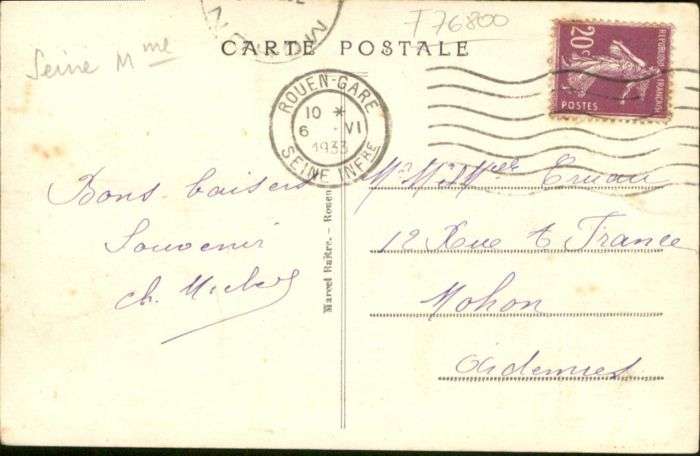 T76800
Seine Mme
CARTE POSTALE
ROUEN-GARE
10 *
6 VI
1933
SEINE INFRE
20c
REPUBLIQUE FRANÇAISE
POSTES
Bons baisers
Souvenir
Ch.
Marcel Raître. - Rouen
12 Rue de France
Mohon
Ardennes